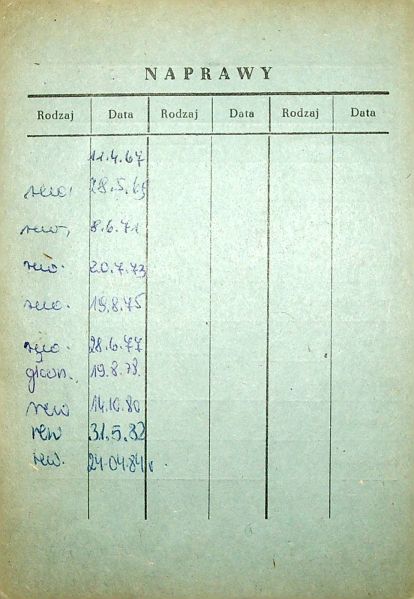 NAPRAWY
Rodzaj Data Rodzaj Data Rodzaj Data
11.4.67
rew. 28.5.69
rew. 8.6.71
rew. 20.7.73
rew. 19.8.75
rew. 28.6.77
19.8.78.
rew 14.10.80
rew 31.5.82
rew. 24.04.84r.